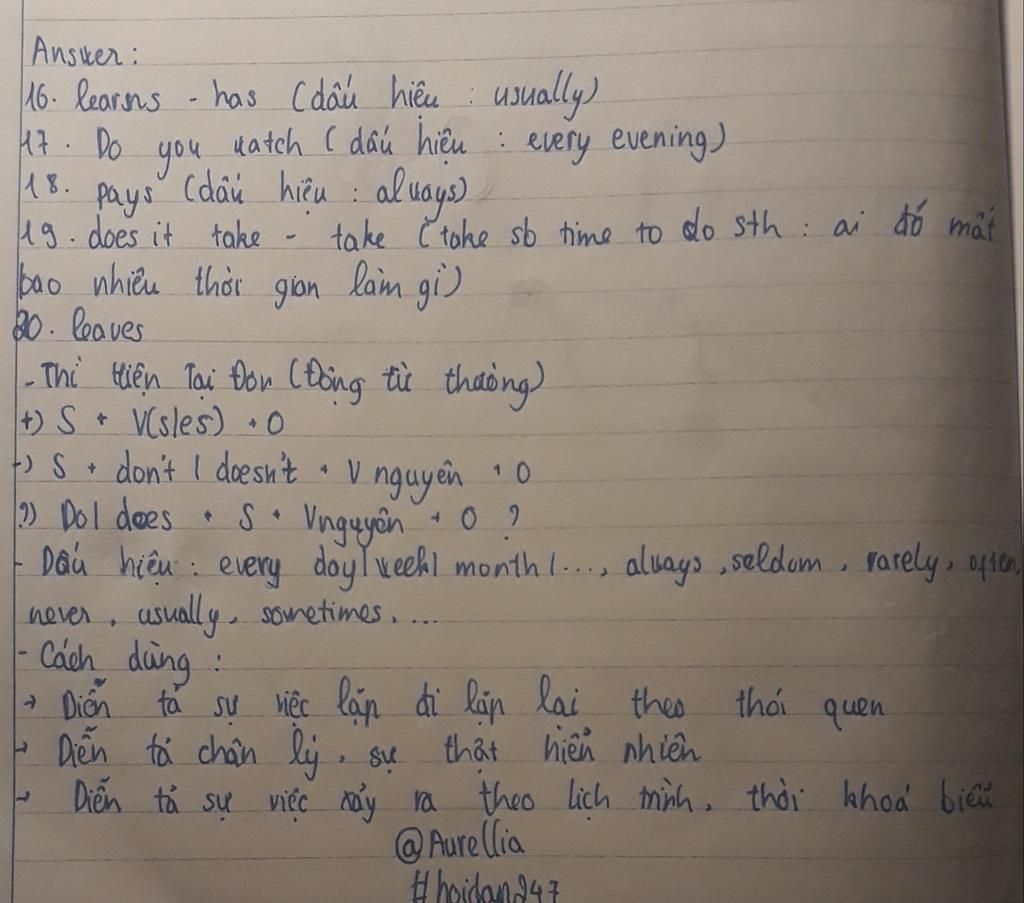 Answer:
16. learns - has (dấu hiệu : usually)
17. Do you watch (dấu hiệu : every evening)
18. pays (dấu hiệu : always)
19. does it take - take (take sb time to do sth : ai đó mất
bao nhiêu thời gian làm gì)
20. leaves
- Thì Hiện Tại Đơn (Động từ thường)
+) S + V(s/es) + O
-) S + don't / doesn't + V nguyên + O
?) Do / does + S + Vnguyên + O ?
- Dấu hiệu : every day / week / month / ..., always, seldom, rarely, often,
never, usually, sometimes, ...
- Cách dùng :
→ Diễn tả sự việc lặp đi lặp lại theo thói quen
→ Diễn tả chân lý, sự thật hiển nhiên
→ Diễn tả sự việc xảy ra theo lịch trình, thời khoá biểu
@Aurellia
#hoidap247